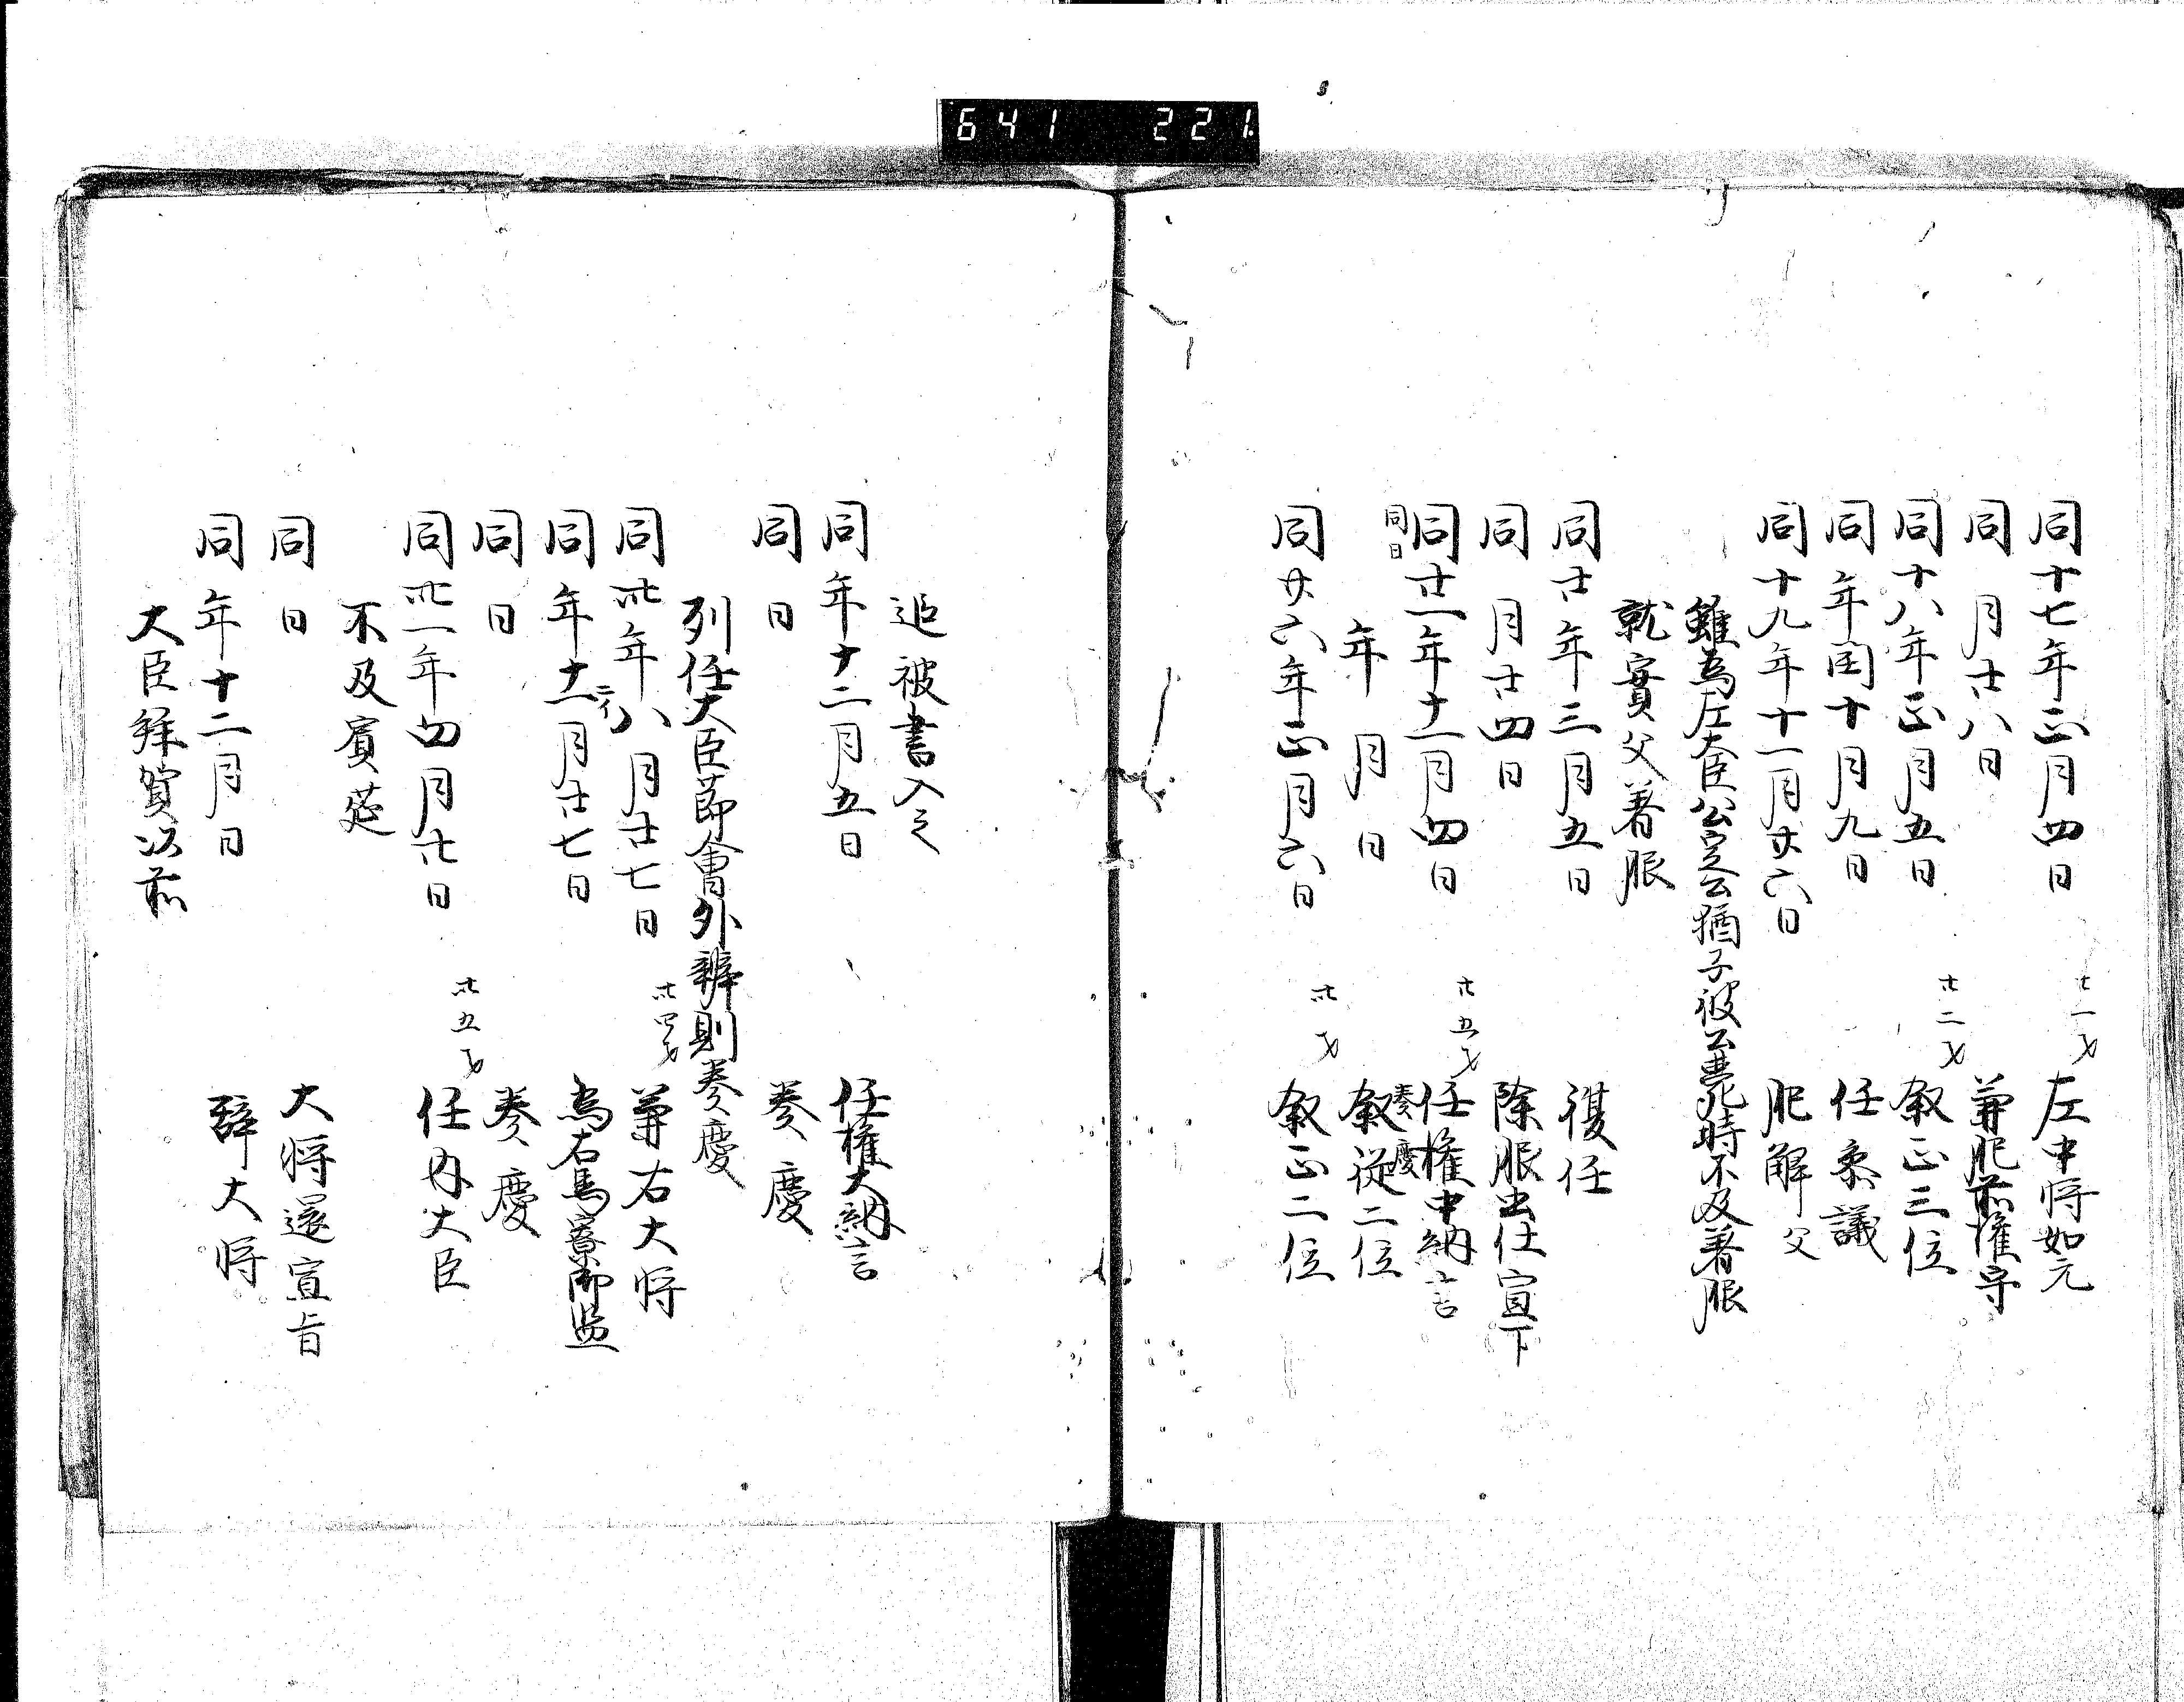 641 221
同十七年正月四日 廿一才 左中将如元
同 月廿八日 兼肥前権守
同十八年正月五日 廿二才 叙正三位
同 年閏十月九日 任参議
同十九年十一月廿六日 服解 父
雖為左大臣公定公猶子彼公薨死時不及着服
就實父着服
同廿年三月五日 復任
同 月廿四日 除服出仕宣下
同廿一年十一月四日 廿五才 任権中納言
同日 奏慶
年 月 日 叙従二位
同廿六年正月六日 卅才 叙正二位
追被書入之
同年十二月五日 任権大納言
同日 奏慶
列任大臣節會外辨則奏慶
同卅年八月廿七日 卅四才 兼右大将
同年十一月廿七日 為右馬寮御監
同日 奏慶
同卅一年四月廿日 卅五才 任内大臣
不及賓莚
同日 大将還宣旨
同年十二月日 辞大将
大臣拝賀以前